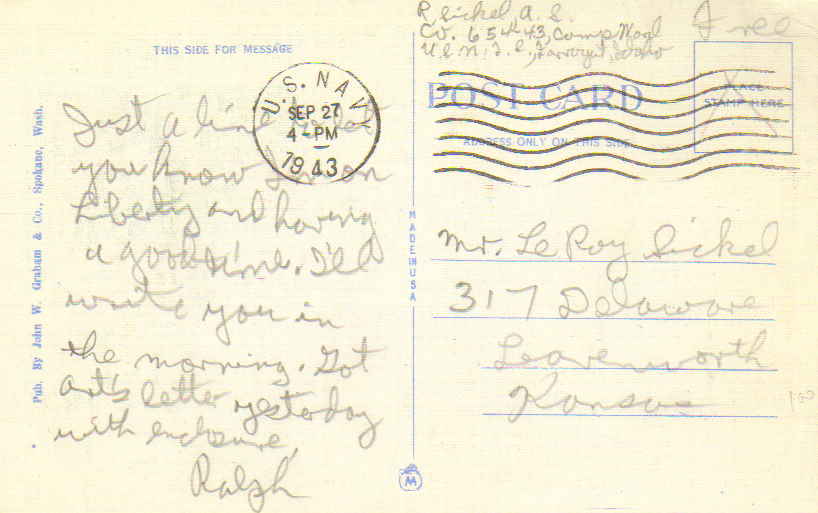 R Sickel A. S.
Co. 654 43, Camp Wagl
U.S.N.T.S., Farragut, Idaho
Free
THIS SIDE FOR MESSAGE
U.S. NAVY
SEP 27
4-PM
1943
PLACE
STAMP HERE
POST CARD
ADDRESS ONLY ON THIS SIDE
Just a line to let
you know I'm on
Liberty and having
a good time. I'll
write you in
the morning. Got
Art's letter yesterday
with enclosure,
Ralph
Pub. By John W. Graham & Co., Spokane, Wash.
MADE IN USA
Mr. LeRoy Sickel
317 Delaware
Leavenworth
Kansas
M